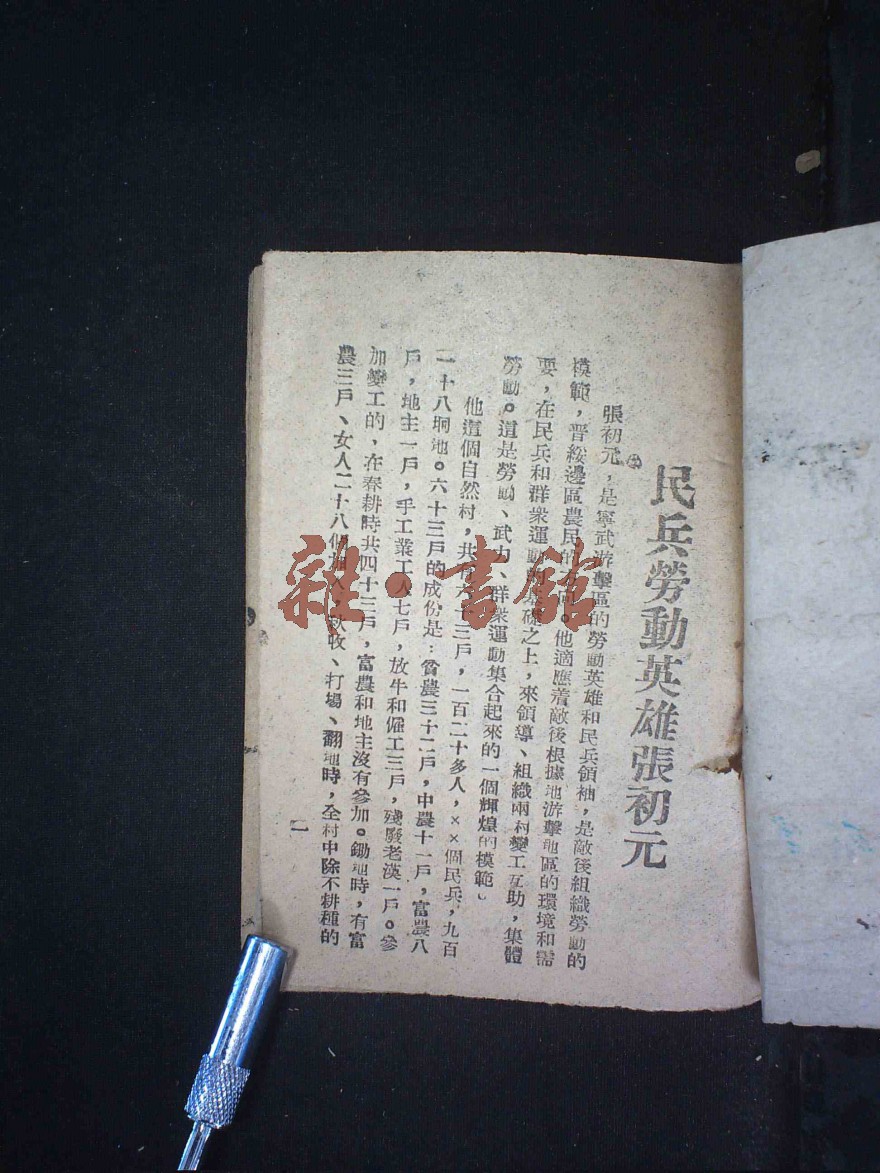 民兵勞動英雄張初元
張初元，是寧武游擊區的勞動英雄和民兵領袖，是敵後組織勞動的
模範，晋綏邊區農民的方向。他適應着敵後根據地游擊地區的環境和需
要，在民兵和群衆運動的基礎之上，來領導、組織兩村變工互助，集體
勞動。這是勞動、武力、群衆運動集合起來的一個輝煌的模範。
他這個自然村，共有六十三戶，一百二十多人，××個民兵，九百
二十八垧地。六十三戶的成份是：貧農三十二戶，中農十一戶，富農八
戶，地主一戶，手工業工人七戶，放牛和僱工三戶，殘廢老漢一戶。參
加變工的，在春耕時共四十三戶，富農和地主沒有參加。鋤地時，有富
農三戶、女人二十八個加入，秋收、打場、翻地時，全村中除不耕種的
一
雜·書館